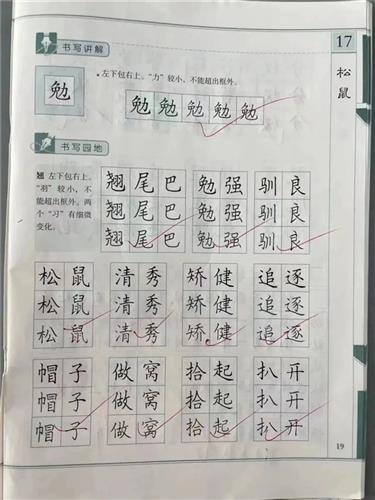 书写讲解
17
松鼠
勉
左下包右上。“力”较小,不能超出框外。
勉勉勉勉勉
书写园地
翘 左下包右上。
“羽”较小,不
能超出框外。两
个“习”有细微
变化。
翘尾巴 勉强 驯良
翘尾巴 勉强 驯良
翘尾巴 勉强 驯良
松鼠 清秀 矫健 追逐
松鼠 清秀 矫健 追逐
松鼠 清秀 矫健 追逐
帽子 做窝 拾起 扒开
帽子 做窝 拾起 扒开
帽子 做窝 拾起 扒开
19